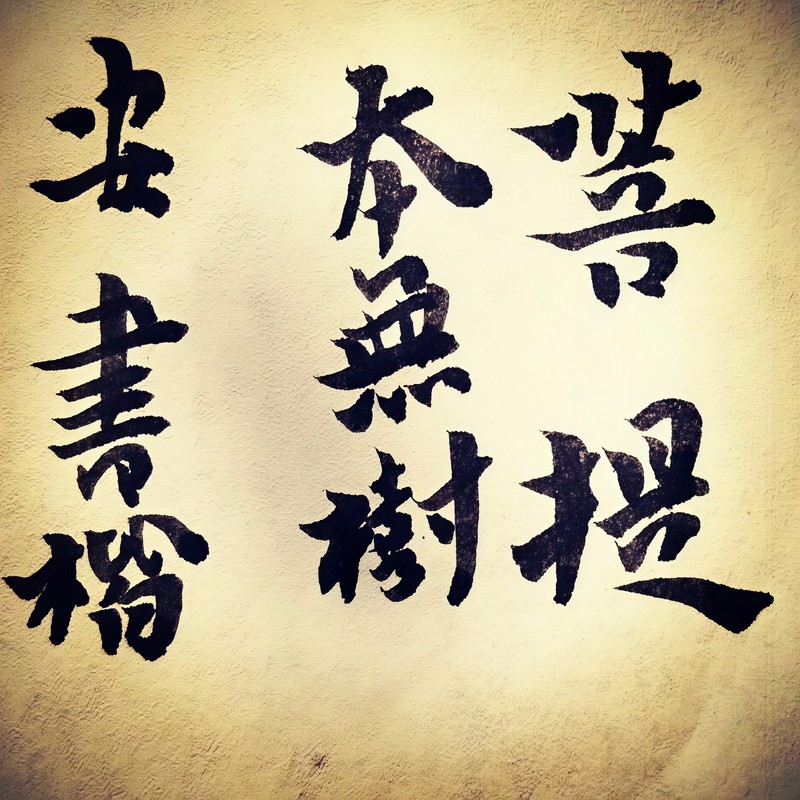 菩提
本無樹
安書